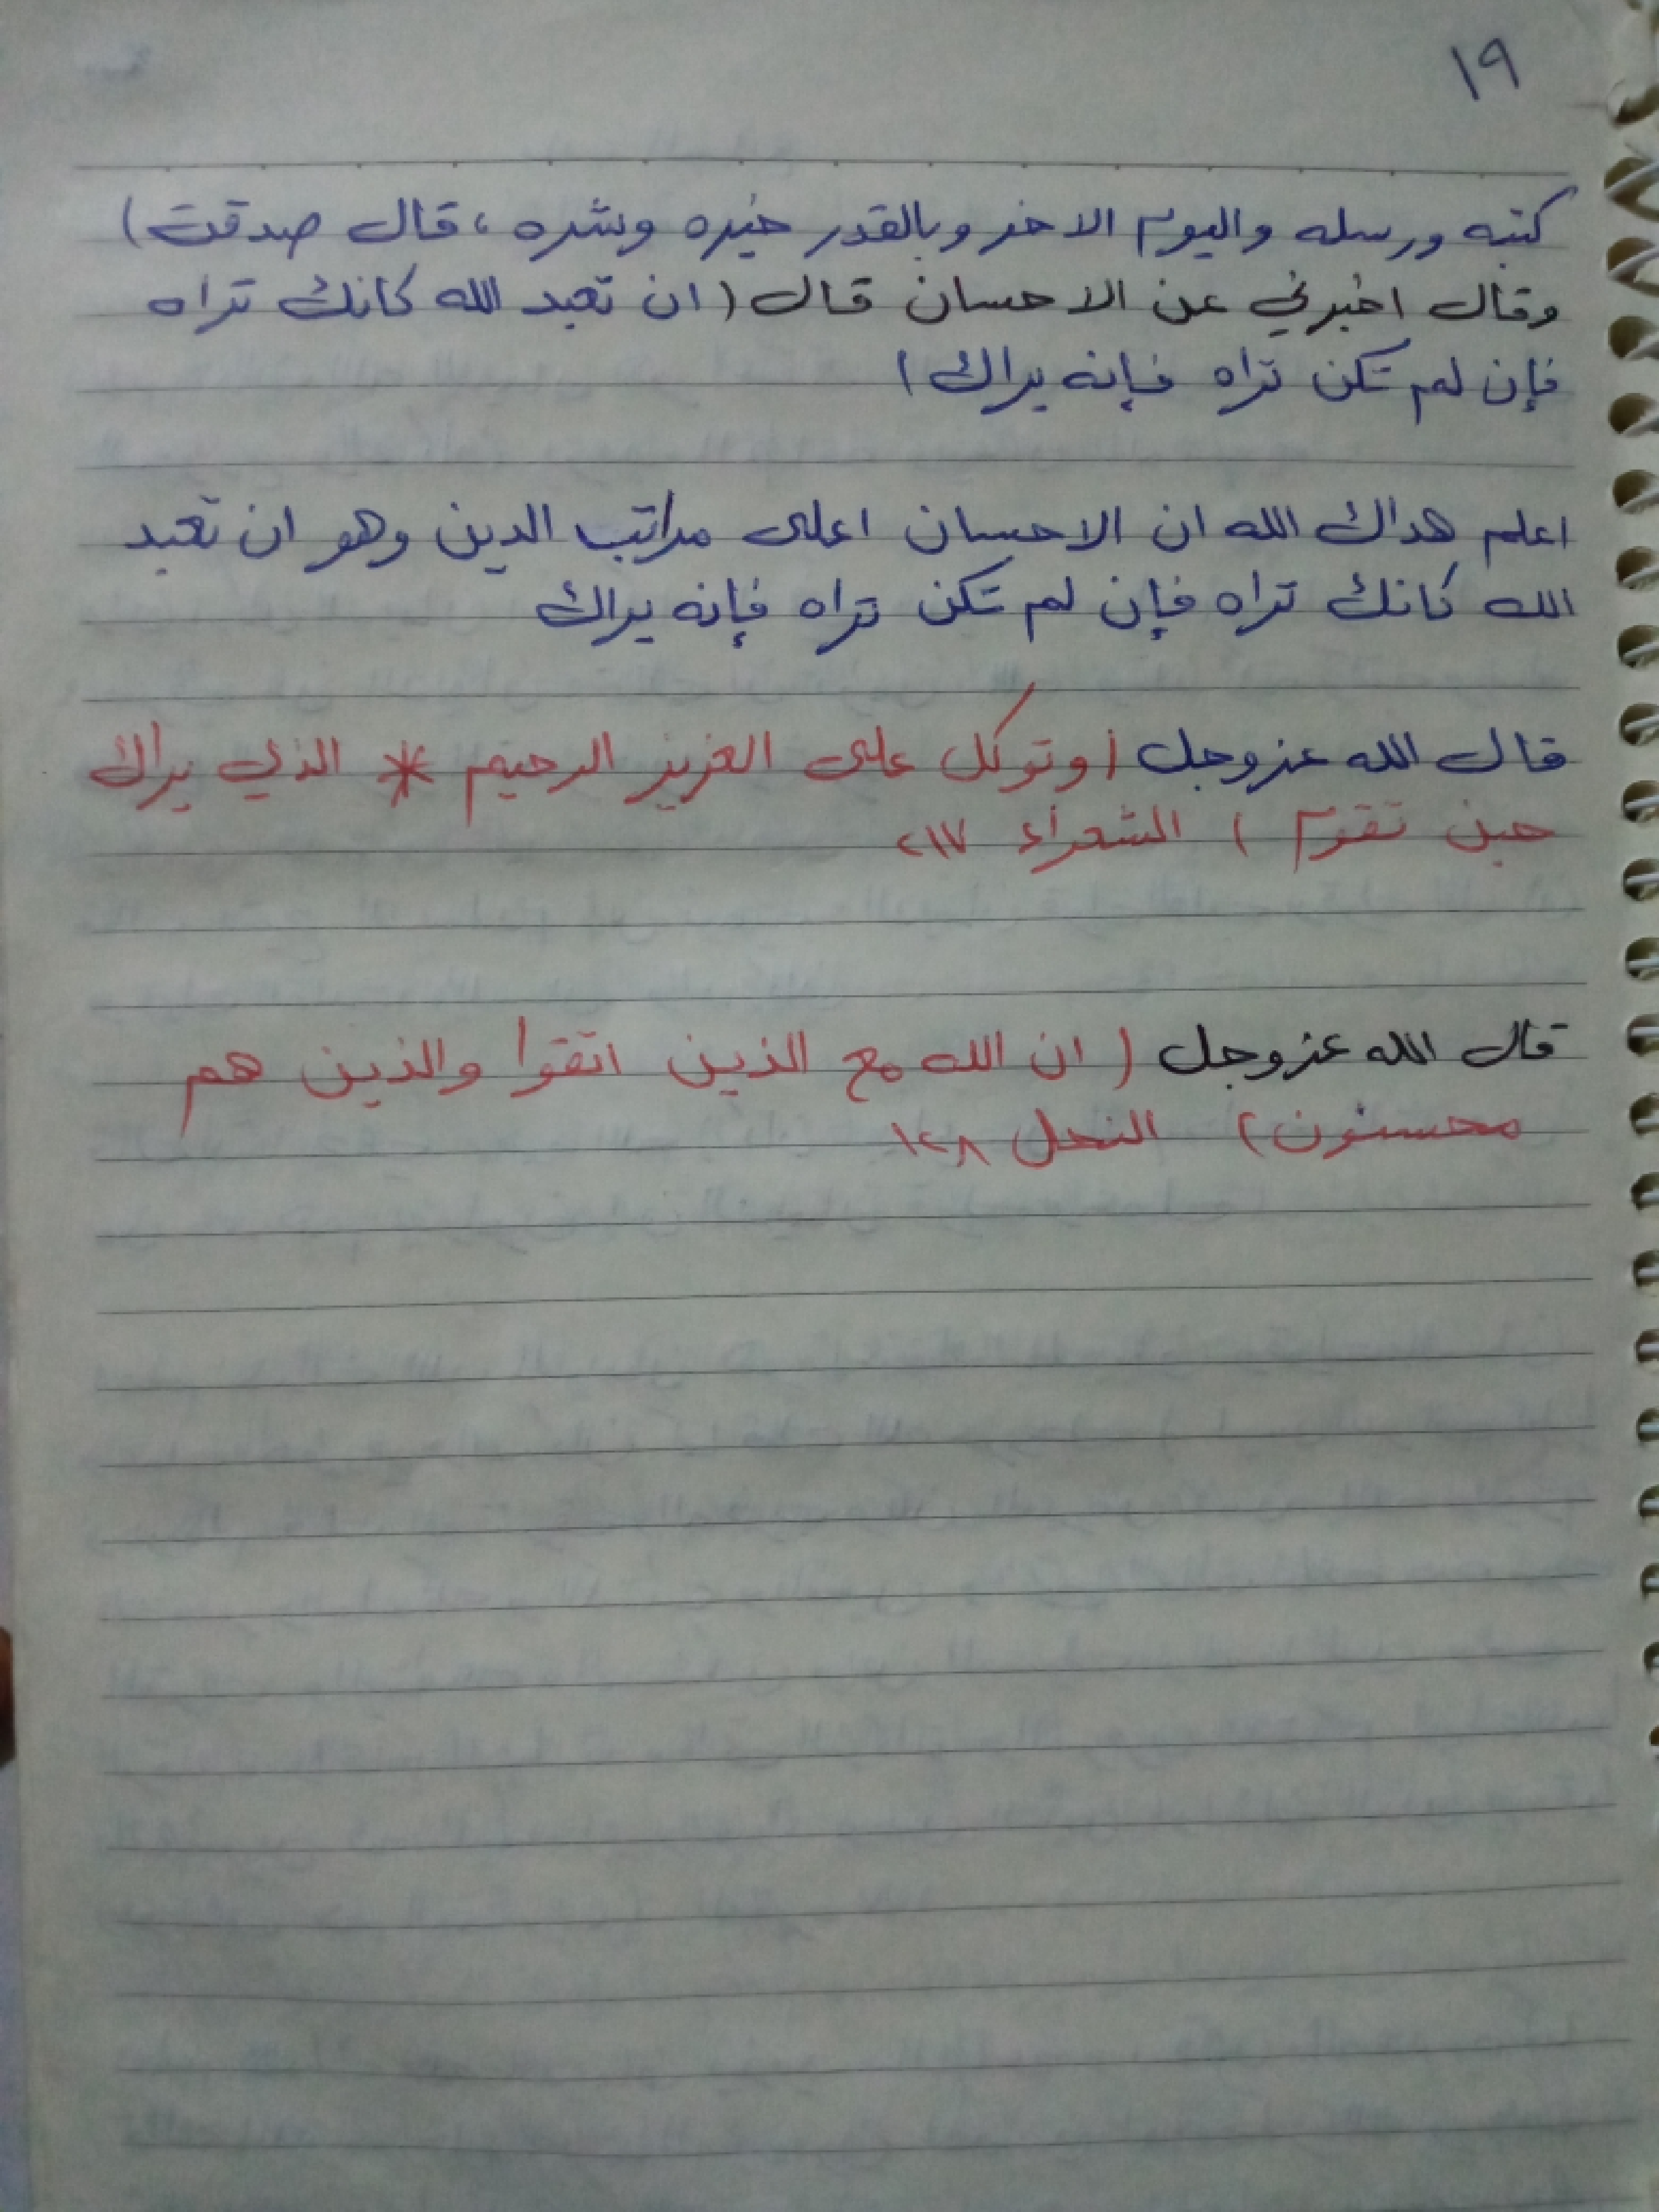 ١٩
كتبه ورسله واليوم الاخر وبالقدر خيره وشره ، قال صدقت)
وقال اخبرني عن الاحسان قال (ان تعبد الله كانك تراه
فإن لم تكن تراه فإنه يراك)
اعلم هداك الله ان الاحسان اعلى مراتب الدين وهو ان تعبد
الله كانك تراه فإن لم تكن تراه فإنه يراك
قال الله عزوجل (وتوكل على العزيز الرحيم * الذي يراك
حين تقوم) الشعراء ٢١٧
قال الله عزوجل (ان الله مع الذين اتقوا والذين هم
محسنون) النحل ١٢٨